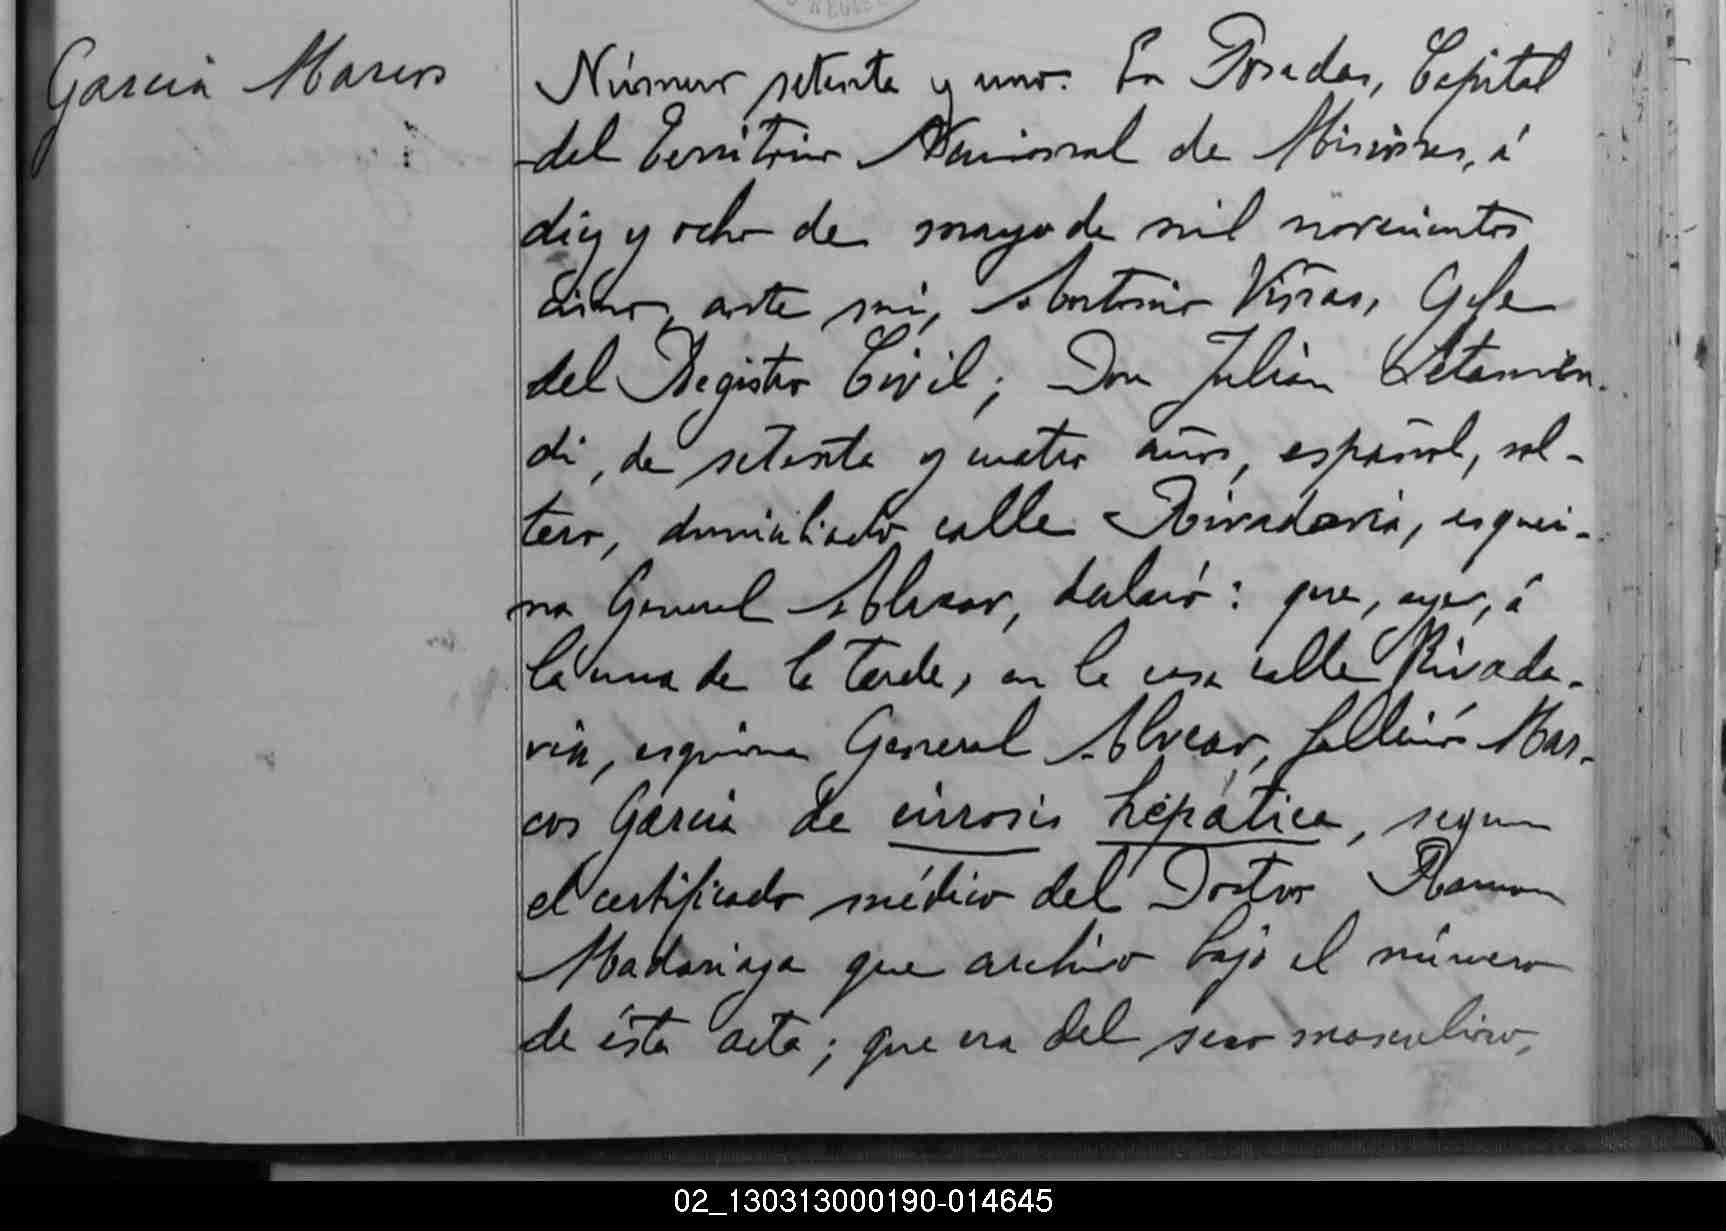 García Marcos
Número setenta y uno. En Posadas, Capital
del Territorio Nacional de Misiones, á
diez y ocho de mayo de mil novecientos
cinco, ante mí, Antonio Viñas, Gefe
del Registro Civil; Don Julián Letamen-
di, de setenta y cuatro años, español, sol-
tero, domiciliado calle Rivadavia, esqui-
na General Alvear, declaró: que, ayer, á
la una de la tarde, en la casa calle Rivada-
via, esquina General Alvear, falleció Mar-
cos García de cirrosis hepática, segun
el certificado médico del Doctor Ramon
Madariaga que archivo bajo el número
de ésta acta; que era del sexo masculino,
02_130313000190-014645